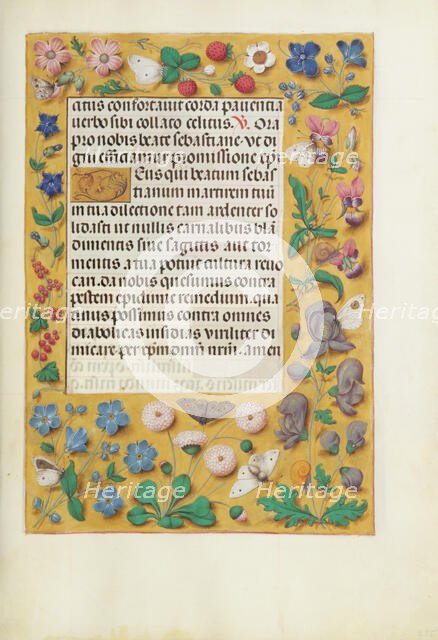 atis confortauit corda pauentia
uerbo sibi collato celitus. V. Ora
pro nobis beate sebastiane. Ut di
gni efficiamur promissione
Deus qui beatum sebas
tianum martirem tuū
in tua dilectione tam ardenter so
lidasti ut nullis carnalibus blā
dimentis siue sagitis aut tor
mentis a tua potuit cultura reuo
cari. da nobis quesumus contra
pestem epidimie remedium. qua
tinus possimus contra omnes
diabolicas insidias uiriliter di
micare per xpm dnm nrm. amen
Heritage Images
Heritage Images
Heritage Images
Heritage Images
Heritage Images
Heritage Images